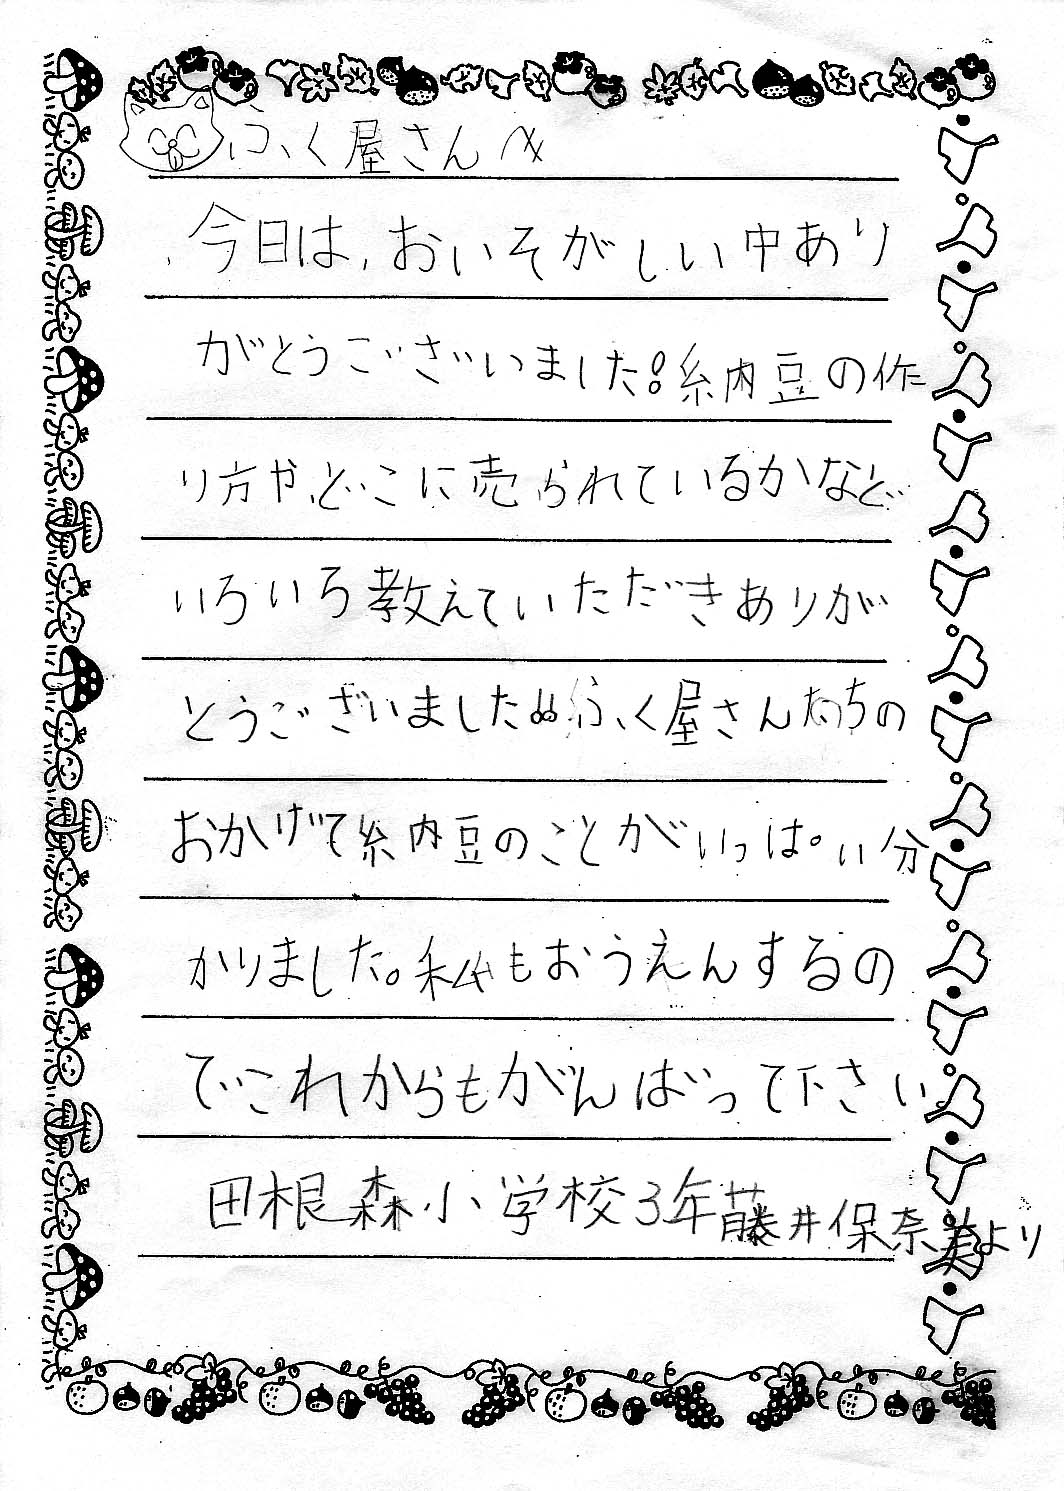 ふく屋さんへ
今日は、おいそがしい中あり
がとうございました!糸内豆の作
り方や、どこに売られているかなど
いろいろ教えていただきありが
とうございました!!ふく屋さんたちの
おかげで糸内豆のことがいっぱい分
かりました。私もおうえんするの
でこれからもがんばって下さい。
田根森小学校3年藤井保奈美より